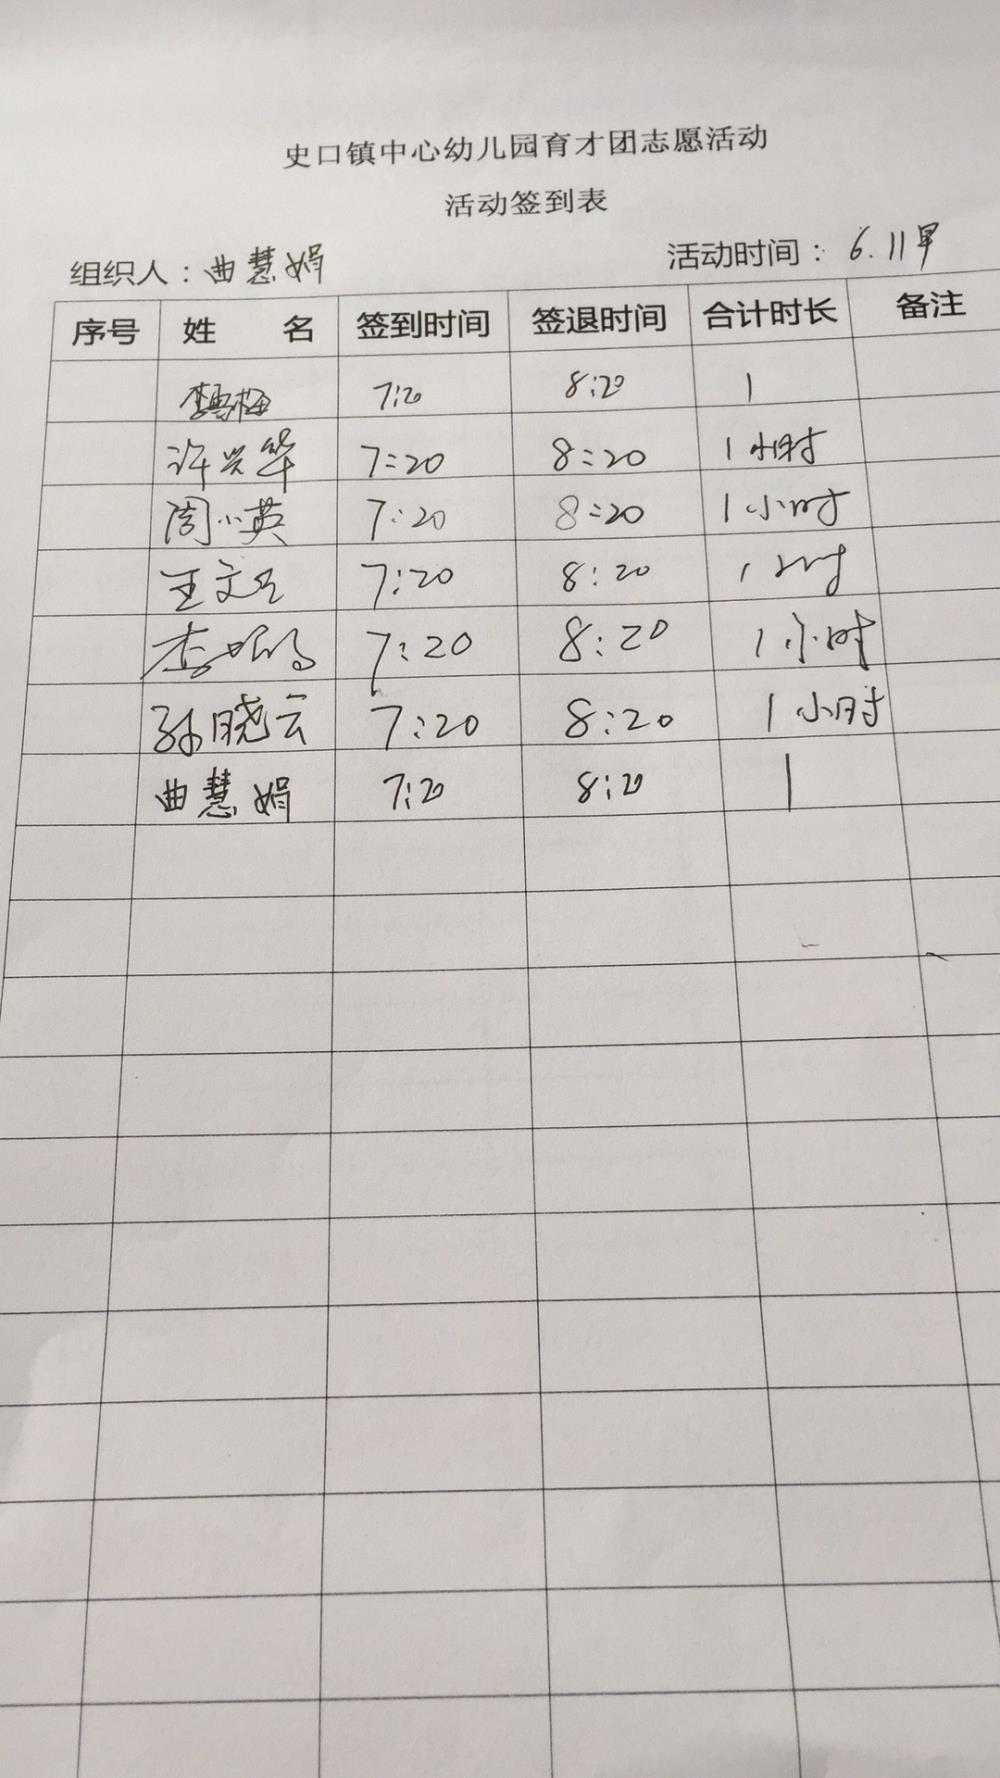 史口镇中心幼儿园育才团志愿活动
活动签到表
组织人：曲慧娟 活动时间：6.11早
序号 姓 名 签到时间 签退时间 合计时长 备注
李雪梅 7:20 8:20 1
许兴华 7:20 8:20 1小时
周小英 7:20 8:20 1小时
王文 7:20 8:20 1小时
李 7:20 8:20 1小时
孙晓云 7:20 8:20 1小时
曲慧娟 7:20 8:20 1